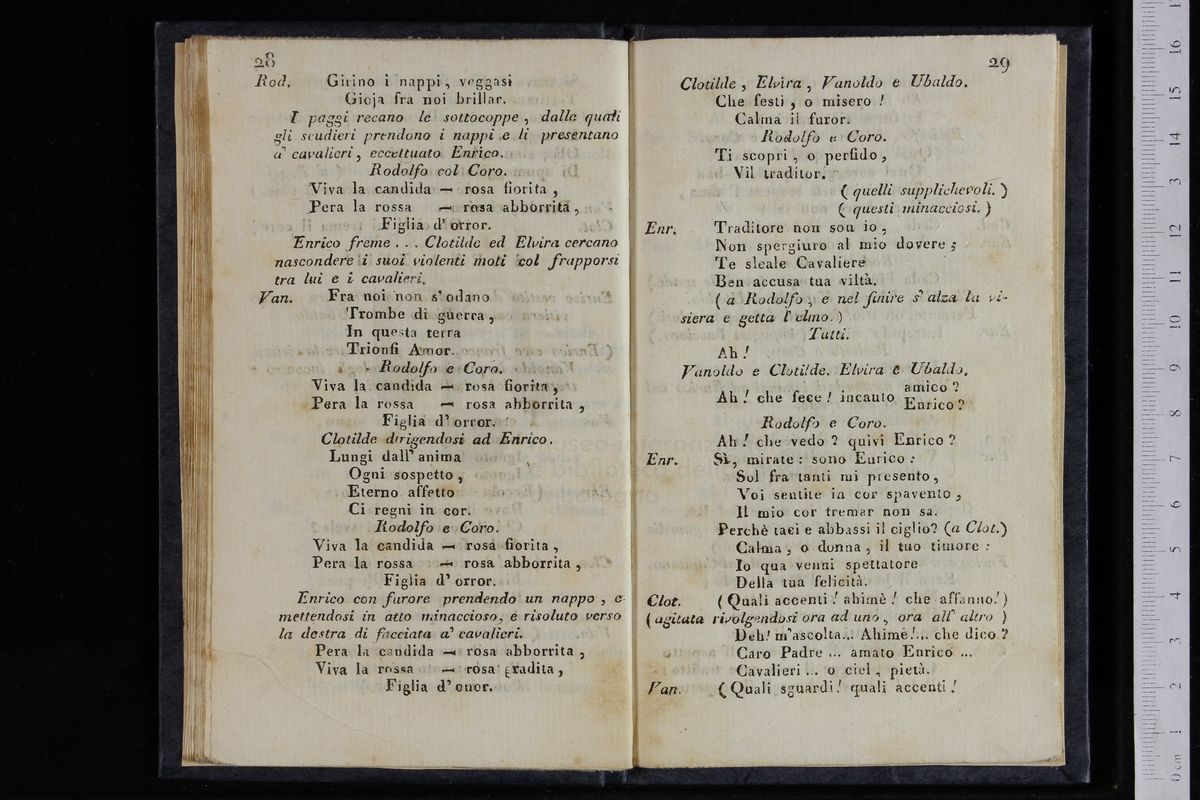 28
Rod. Girino i nappi, veggasi
Gioja fra noi brillar.
I paggi recano le sottocoppe, dalle quali
gli scudieri prendono i nappi e li presentano
a' cavalieri, eccettuato Enrico.
Rodolfo col Coro.
Viva la candida — rosa fiorita,
Pera la rossa — rosa abborrita,
Figlia d'orror.
Enrico freme . . . Clotilde ed Elvira cercano
nascondere i suoi violenti moti col frapporsi
tra lui e i cavalieri.
Van. Fra noi non s'odano
Trombe di guerra,
In questa terra
Trionfi Amor.
Rodolfo e Coro.
Viva la candida — rosa fiorita,
Pera la rossa — rosa abborrita,
Figlia d'orror.
Clotilde dirigendosi ad Enrico.
Lungi dall'anima
Ogni sospetto,
Eterno affetto
Ci regni in cor.
Rodolfo e Coro.
Viva la candida — rosa fiorita,
Pera la rossa — rosa abborrita,
Figlia d'orror.
Enrico con furore prendendo un nappo, e
mettendosi in atto minaccioso, e risoluto verso
la destra di facciata a' cavalieri.
Pera la candida — rosa abborrita,
Viva la rossa — rosa gradita,
Figlia d'onor.
29
Clotilde, Elvira, Vanoldo e Ubaldo.
Che festi, o misero!
Calma il furor.
Rodolfo e Coro.
Ti scopri, o perfido,
Vil traditor.
( quelli supplichevoli. )
( questi minacciosi. )
Enr. Traditore non son io,
Non spergiuro al mio dovere;
Te sleale Cavaliere
Ben accusa tua viltà.
( a Rodolfo, e nel finire s'alza la vi-
siera e getta l'elmo. )
Tutti.
Ah!
Vanoldo e Clotilde. Elvira e Ubaldo.
Ah! che fece! incauto amico?
Enrico?
Rodolfo e Coro.
Ah! che vedo? quivi Enrico?
Enr. Sì, mirate: sono Enrico:
Sol fra tanti mi presento,
Voi sentite in cor spavento,
Il mio cor tremar non sa.
Perchè taci e abbassi il ciglio? (a Clot.)
Calma, o donna, il tuo timore:
Io qua venni spettatore
Della tua felicità.
Clot. ( Quali accenti! ahimè! che affanno!)
( agitata rivolgendosi ora ad uno, ora all'altro )
Deh! m'ascolta... Ahimè!... che dico?
Caro Padre ... amato Enrico ...
Cavalieri ... o ciel, pietà.
Van. ( Quali sguardi! quali accenti!
0 cm 1 2 3 4 5 6 7 8 9 10 11 12 13 14 15 16